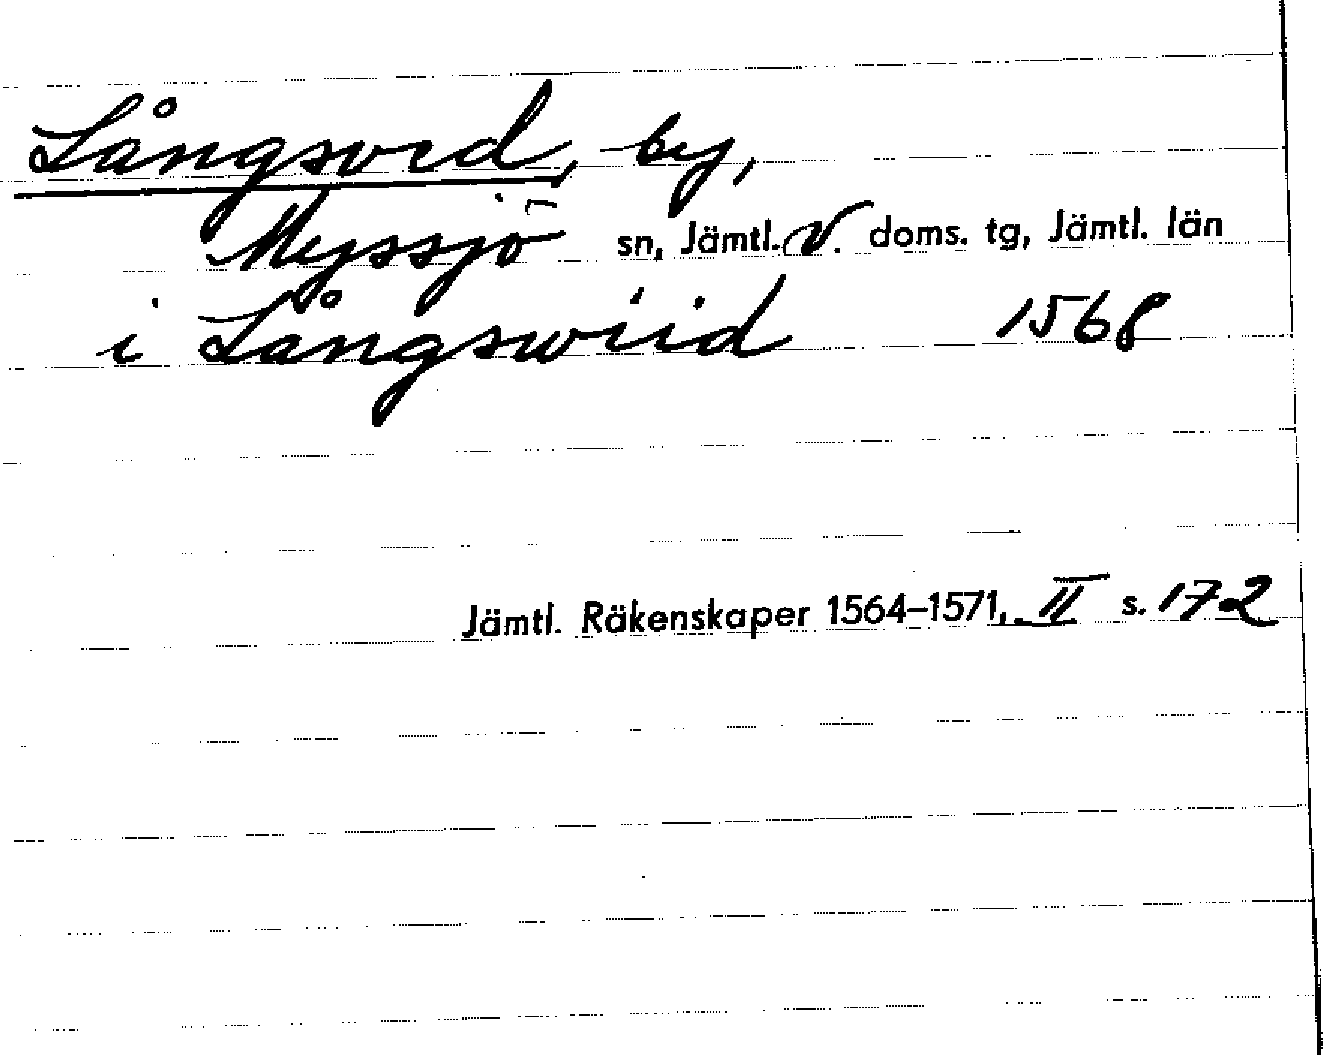 Långsved, by,
Myssjö sn, Jämtl. V. doms. tg, Jämtl. län
i Långswiid 1568
Jämtl. Räkenskaper 1564–1571, II s. 172